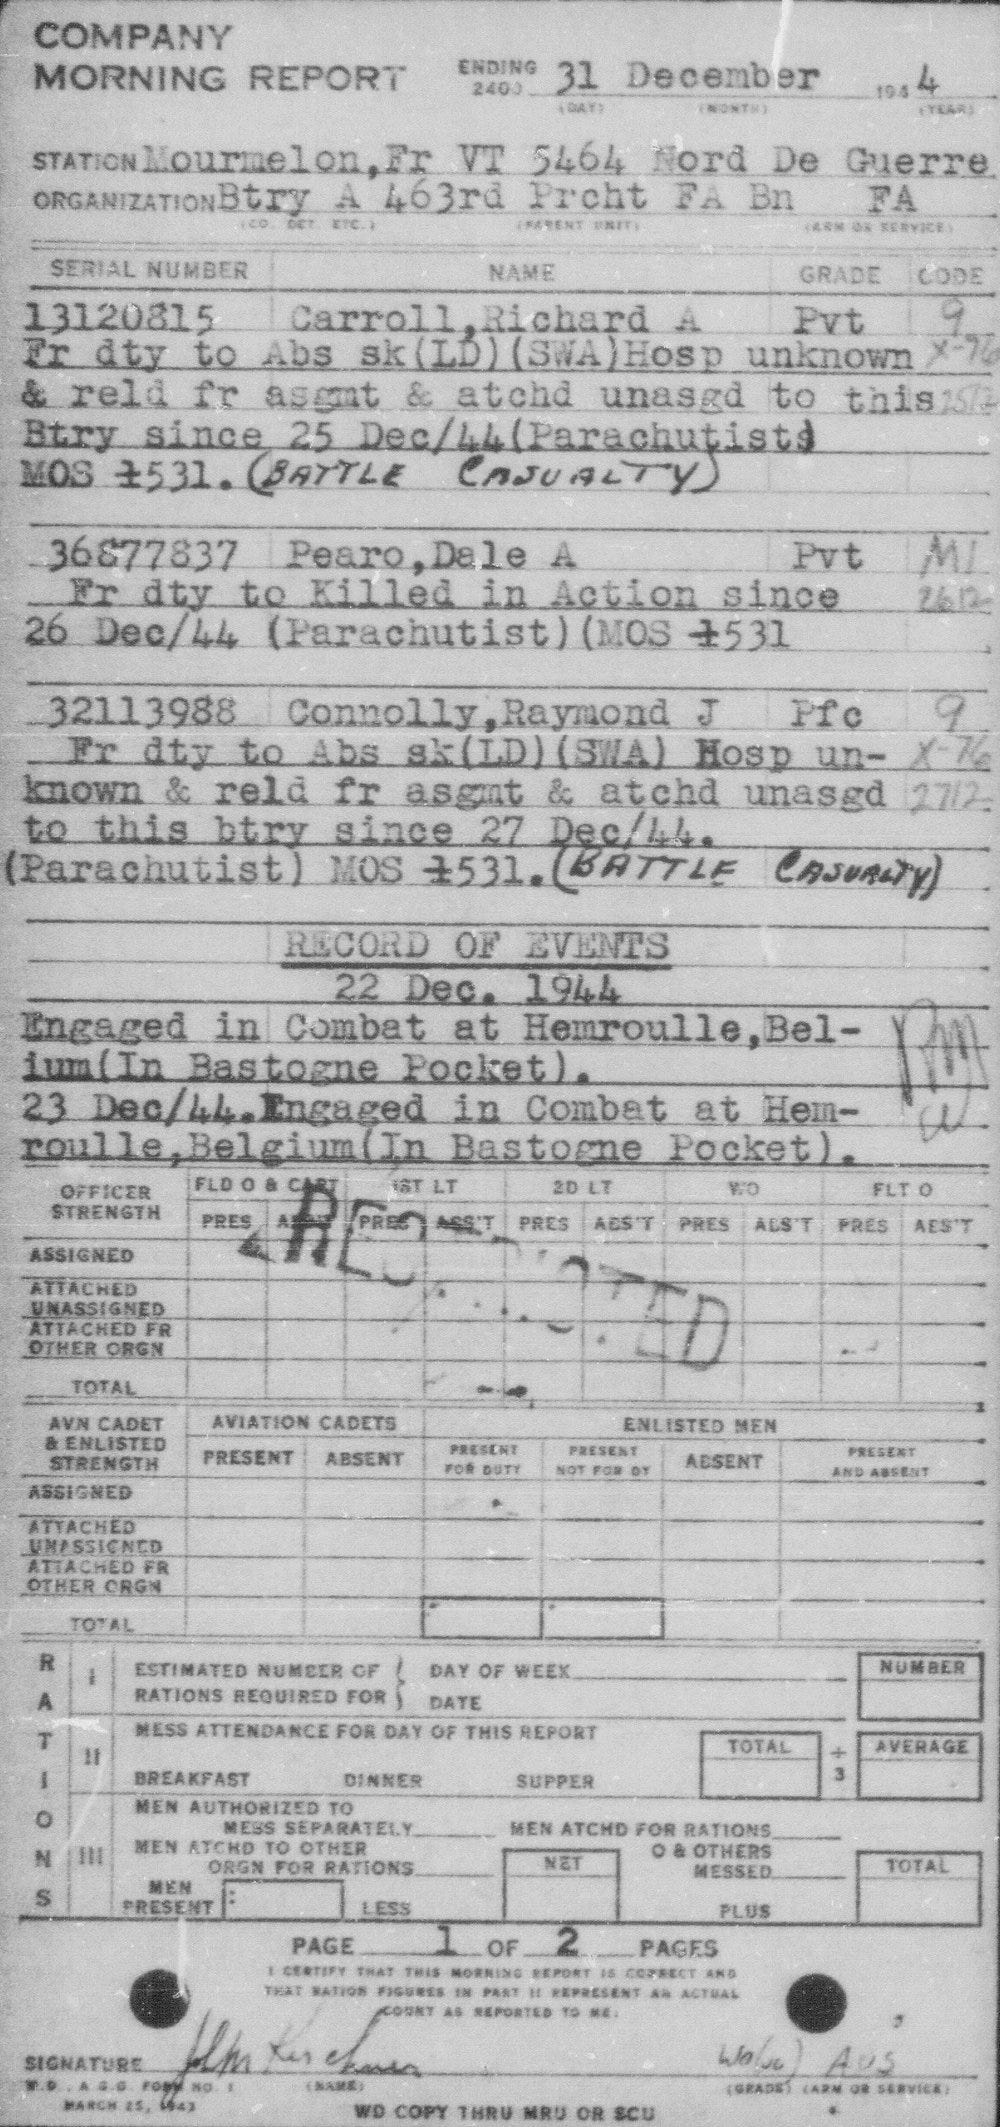 COMPANY
MORNING REPORT ENDING 2400 31 December 194 4
(DAY) (MONTH) (YEAR)
STATION Mourmelon,Fr VT 5464 Nord De Guerre
ORGANIZATION Btry A 463rd Prcht FA Bn FA
(CO. DET. ETC.) (PARENT UNIT) (ARM OR SERVICE)
SERIAL NUMBER NAME GRADE CODE
13120815 Carroll,Richard A Pvt 9
Fr dty to Abs sk(LD)(SWA)Hosp unknown X-76
& reld fr asgmt & atchd unasgd to this
Btry since 25 Dec/44(Parachutist)
MOS 1531.(BATTLE CASUALTY)
36877837 Pearo,Dale A Pvt M1
Fr dty to Killed in Action since 2612
26 Dec/44 (Parachutist)(MOS 1531
32113988 Connolly,Raymond J Pfc 9
Fr dty to Abs sk(LD)(SWA) Hosp un- X-76
known & reld fr asgmt & atchd unasgd 2712
to this btry since 27 Dec/44.
(Parachutist) MOS 1531.(BATTLE CASUALTY)
RECORD OF EVENTS
22 Dec. 1944
Engaged in Combat at Hemroulle,Bel-
ium(In Bastogne Pocket).
23 Dec/44.Engaged in Combat at Hem-
roulle,Belgium(In Bastogne Pocket).
OFFICER STRENGTH FLD O & CAPT 1ST LT 2D LT WO FLT O
PRES ABS'T PRES ABS'T PRES ABS'T PRES ABS'T PRES ABS'T
RESTRICTED
ASSIGNED
ATTACHED
UNASSIGNED
ATTACHED FR
OTHER ORGN
TOTAL
AVN CADET & ENLISTED STRENGTH AVIATION CADETS ENLISTED MEN
PRESENT ABSENT PRESENT FOR DUTY PRESENT NOT FOR DY ABSENT PRESENT AND ABSENT
ASSIGNED
ATTACHED
UNASSIGNED
ATTACHED FR
OTHER ORGN
TOTAL
RATIONS
I ESTIMATED NUMBER OF RATIONS REQUIRED FOR { DAY OF WEEK NUMBER
DATE
II MESS ATTENDANCE FOR DAY OF THIS REPORT TOTAL ÷ 3 AVERAGE
BREAKFAST DINNER SUPPER
III MEN AUTHORIZED TO
MESS SEPARATELY MEN ATCHD FOR RATIONS
MEN ATCHD TO OTHER O & OTHERS
ORGN FOR RATIONS NET MESSED TOTAL
MEN PRESENT LESS PLUS
PAGE 1 OF 2 PAGES
I CERTIFY THAT THIS MORNING REPORT IS CORRECT AND
THAT RATION FIGURES IN PART II REPRESENT AN ACTUAL
COUNT AS REPORTED TO ME.
SIGNATURE John AUS
W.D., A.G.O. FORM NO. 1 (NAME) (GRADE) (ARM OR SERVICE)
MARCH 25, 1943
WD COPY THRU MRU OR SCU